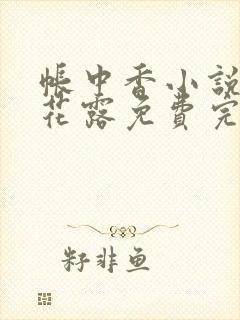 帳中香小說
花露免費完
籽非鱼